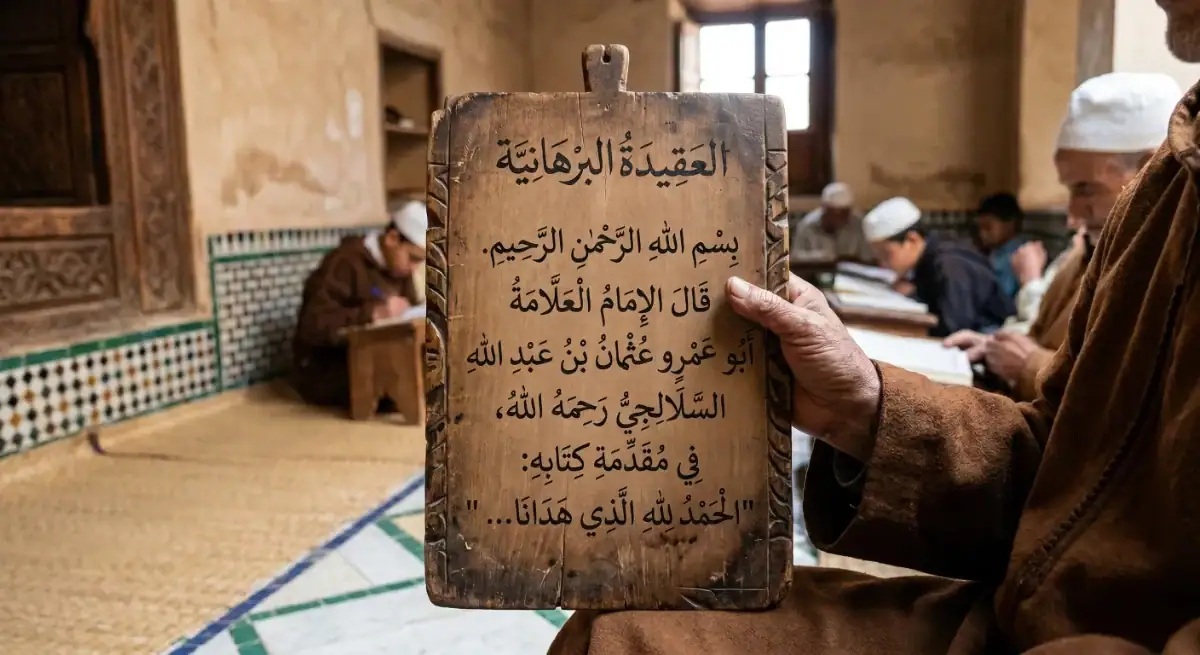 العَقِيدَةُ البرْهَانِيَّة
بِسْمِ اللهِ الرَّحْمٰنِ الرَّحِيمِ.
قَالَ الإِمَامُ الْعَلَّامَةُ
أَبُو عَمْرٍو عُثْمَانُ بْنُ عَبْدِ اللهِ
السَّلَالِجِيُّ رَحِمَهُ اللهُ،
فِي مُقَدِّمَةِ كِتَابِهِ:
"الْحَمْدُ لِلهِ الَّذِي هَدَانَا... "